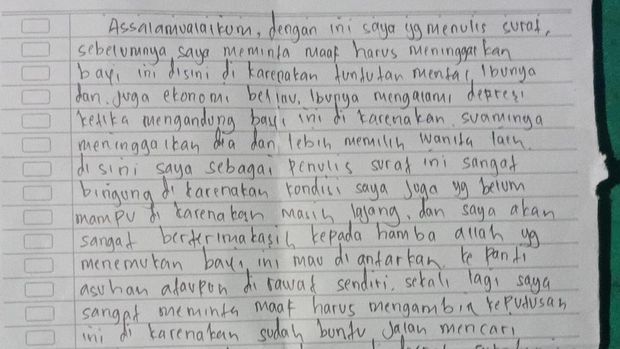 Assalamualaikum, dengan ini saya yg menulis surat,
sebelumnya saya meminta maaf harus meninggalkan
bayi ini disini di karenakan tuntutan mental, Ibunya
dan juga ekonomi beliau. Ibunya mengalami depresi
ketika mengandung bayi ini di karenakan suaminya
meninggalkan dia dan lebih memilih wanita lain.
disini saya sebagai penulis surat ini sangat
bingung di karenakan kondisi saya juga yg belum
mampu di karenakan masih lajang, dan saya akan
sangat berterimakasih kepada hamba allah yg
menemukan bayi ini mau di antarkan ke panti
asuhan ataupun di rawat sendiri, sekali lagi saya
sangat meminta maaf harus mengambil keputusan
ini di karenakan sudah buntu jalan mencari